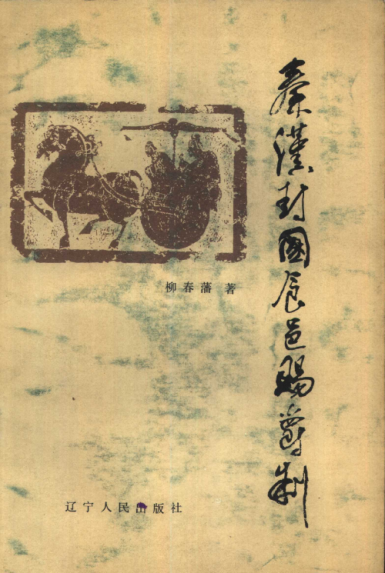 秦漢封國食邑賜爵制
柳春藩 著
辽宁人民出版社